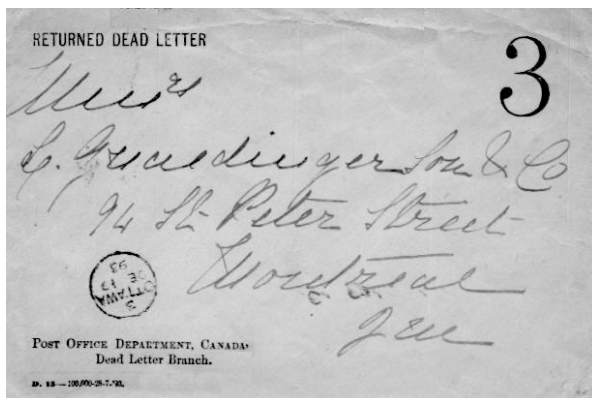 RETURNED DEAD LETTER
3
Messrs
L. Gnaedinger Son & Co
94 St. Peter Street
Montreal
Que
OTTAWA
3
DE 17
93
POST OFFICE DEPARTMENT, CANADA,
Dead Letter Branch.
D. 13—100,000-28-7-'93.